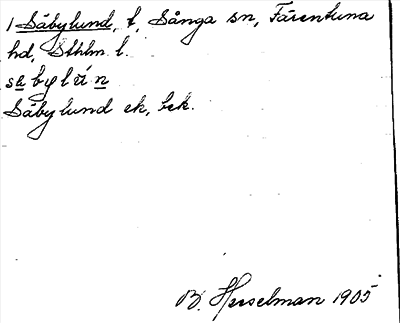 1 Säbylund, t, Sånga sn, Färentuna
hd, Sthlm l.
Säbylund ek, bek.
B. Hesselman 1905